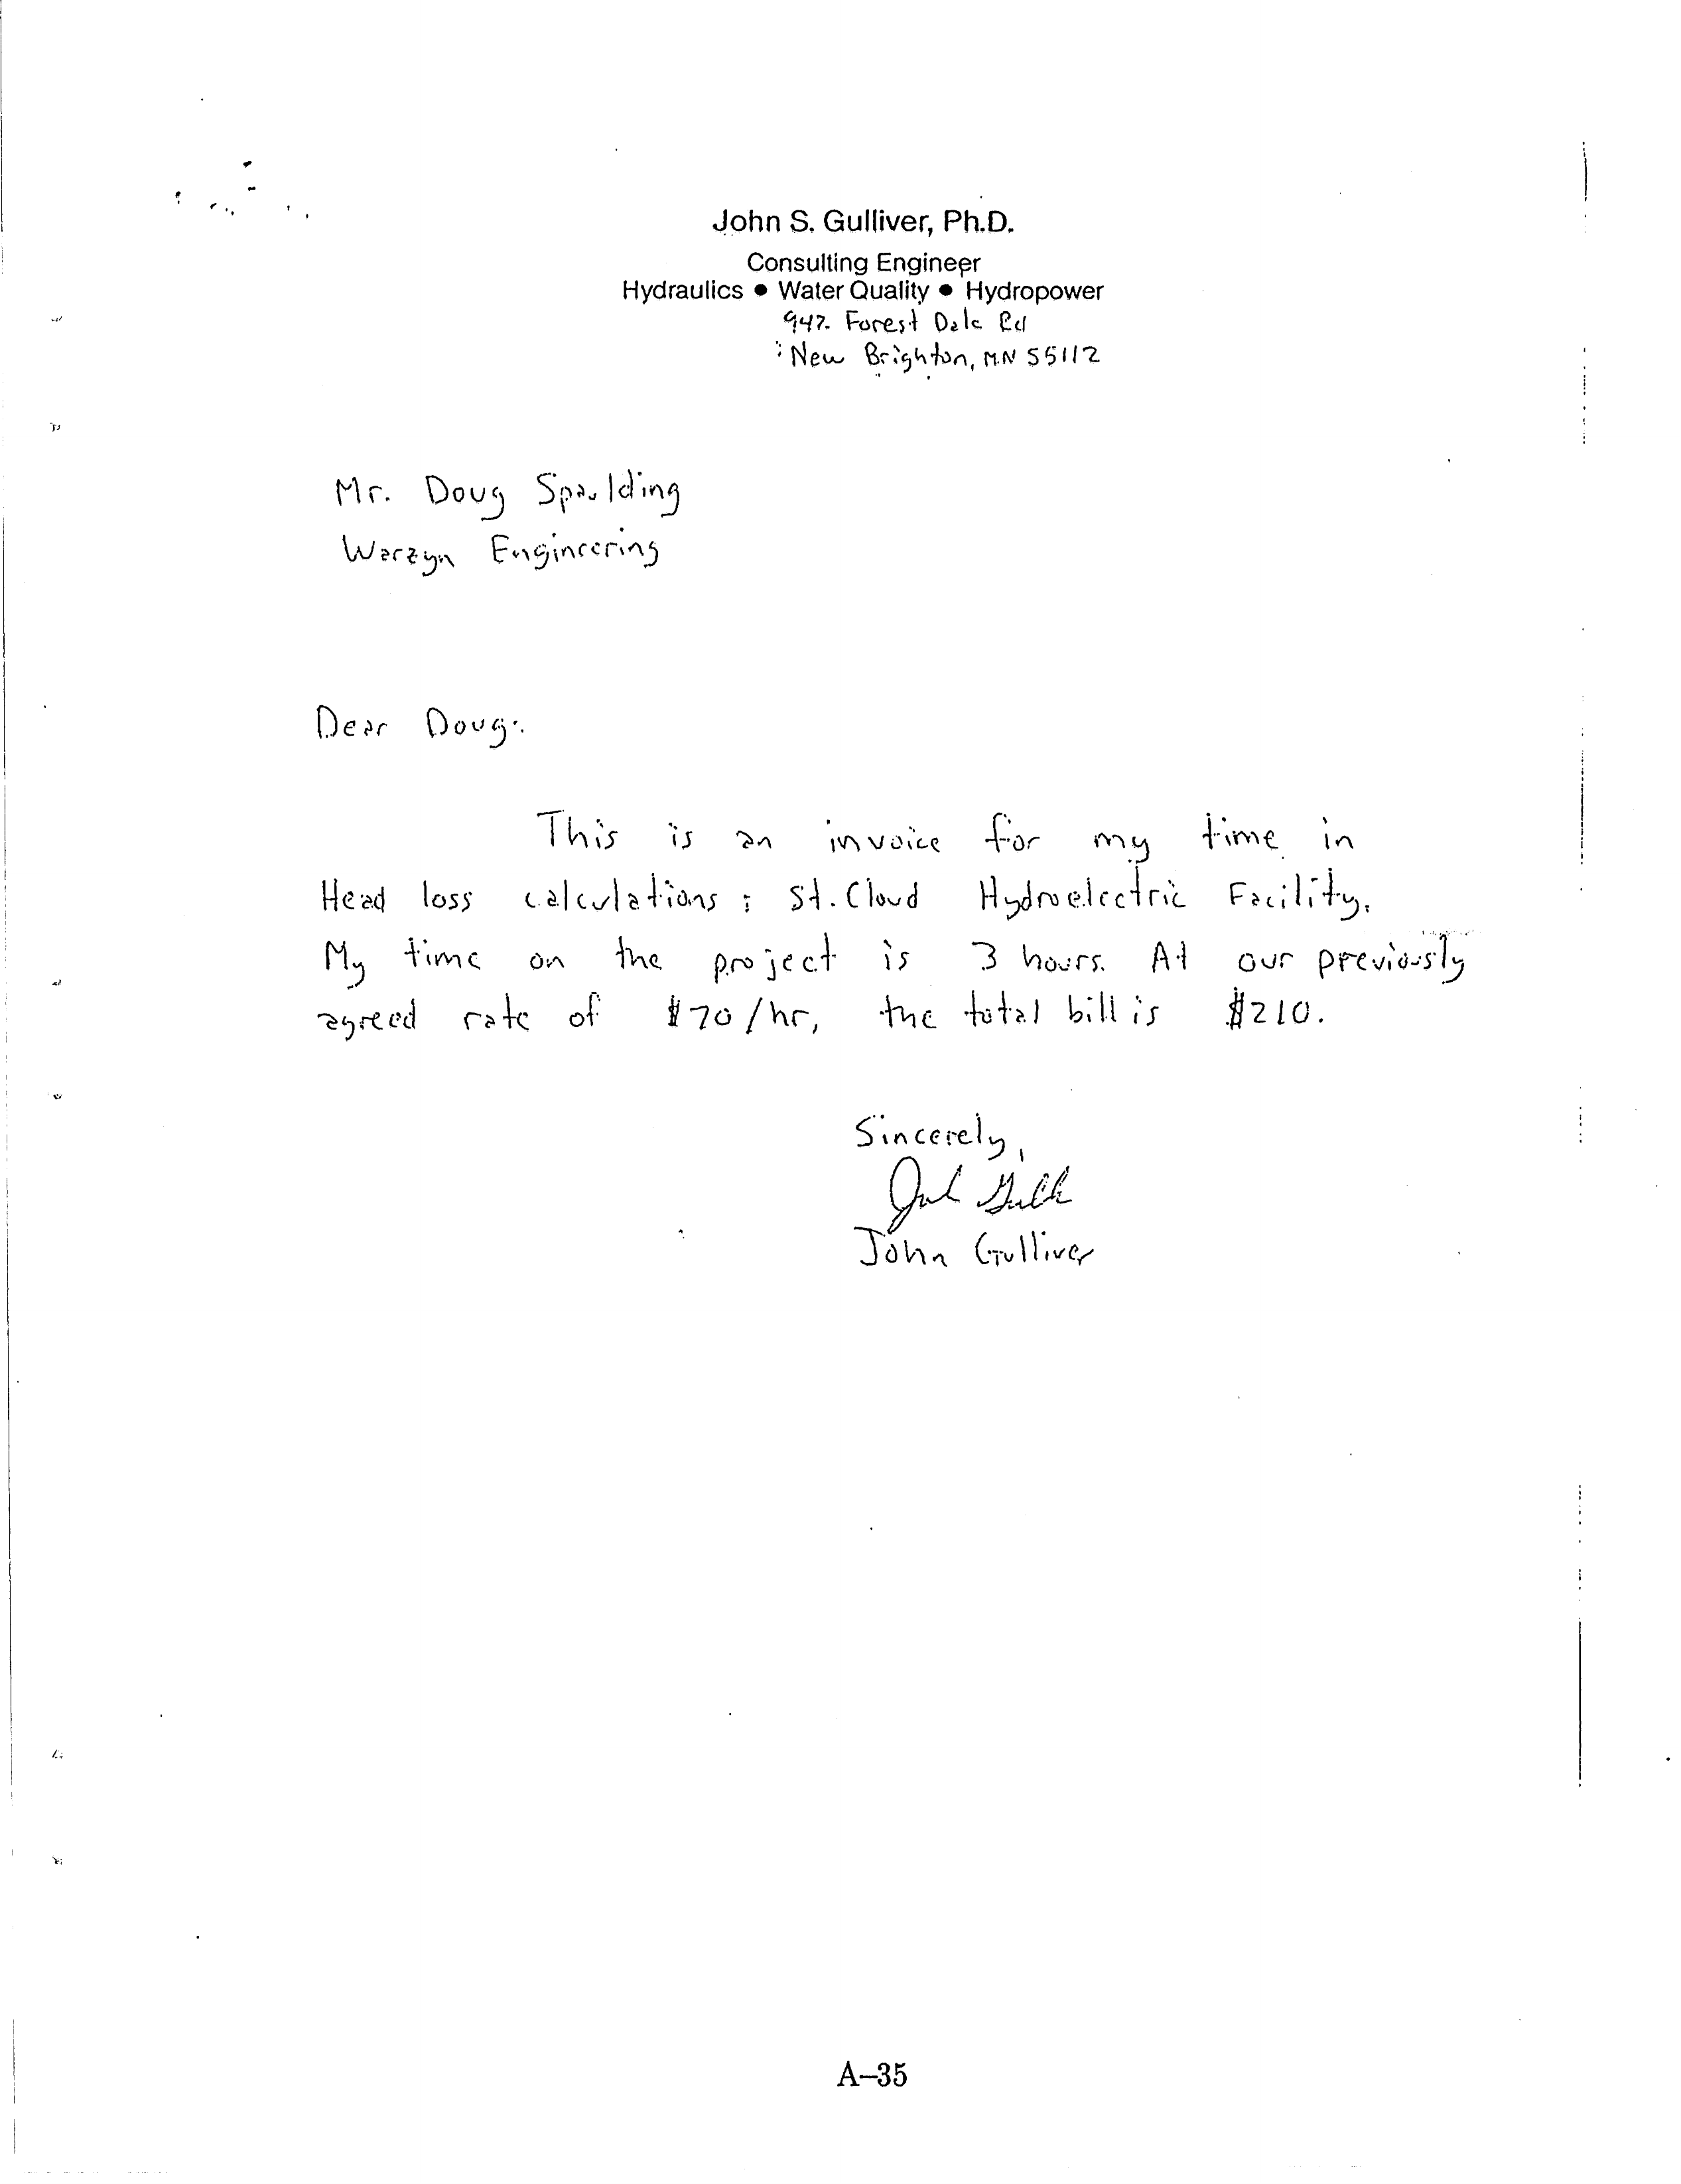 John S. Gulliver, Ph.D.
Consulting Engineer
Hydraulics ● Water Quality ● Hydropower
947 Forest Dale Rd
New Brighton, MN 55112
Mr. Doug Spaulding
Warzyn Engineering
Dear Doug:
This is an invoice for my time in
Head loss calculations; St. Cloud Hydroelectric Facility.
My time on the project is 3 hours. At our previously
agreed rate of $70/hr, the total bill is $210.
Sincerely,
John Gulliver
A–35